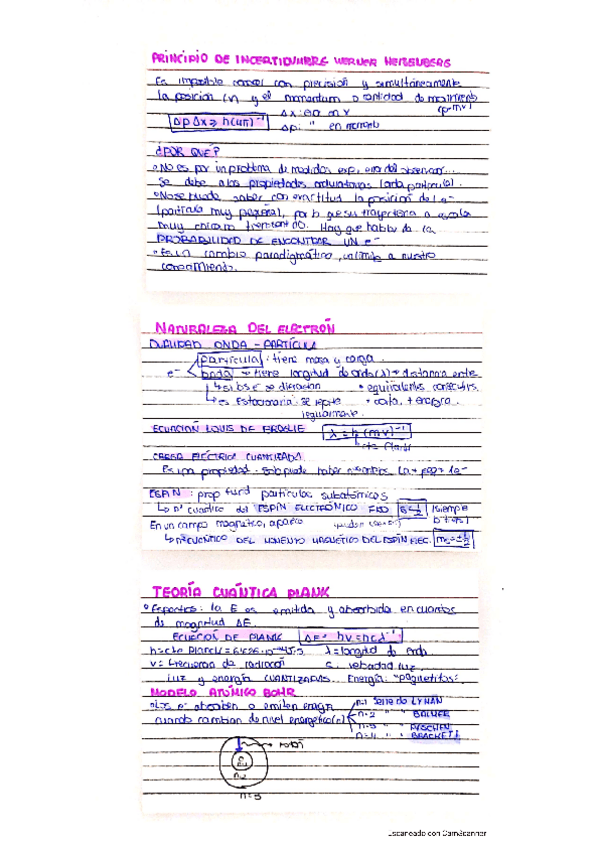 PRINCIPIO DE INCERTIDUMBRE WERNER HEISENBERG
Es imposible conocer con precisión y simultáneamente
la posición (x) y el momentum o cantidad de movimiento
(p=mv)
Δp Δx ≥ h(4π)⁻¹
Δp: " en momento
¿POR QUÉ?
No es por un problema de medidas exp, o del observador...
Se debe a las propiedades ondulatorias (cada partícula).
No se puede saber con exactitud la posición del e⁻
(partícula muy pequeña), por lo que su trayectoria a escala
muy Hay que hablar de la
PROBABILIDAD DE ENCONTRAR UN e⁻
Es un cambio paradigmático, un límite a nuestro
conocimiento.
NATURALEZA DEL ELECTRÓN
DUALIDAD ONDA - PARTÍCULA
partícula: tiene masa y carga.
e⁻ onda → tiene longitud de onda (λ) → distancia entre
si bs e⁻ se difractan • equivalentes consecutivos.
es estacionaria: se repite • corta, + energía.
regularmente.
ECUACIÓN LOUIS DE BROGLIE λ = h (mv)⁻¹
cte Planck
CARGA ELÉCTRICA CUANTIZADA
Es una propiedad. Solo puede haber nº enteros
ESPÍN: prop fund partículas subatómicas
nº cuántico del ESPÍN ELECTRÓNICO FIJO S=½ (siempre
En un campo magnético, aparece
nº CUÁNTICO DEL MOMENTO MAGNÉTICO DEL ESPÍN ELEC. ms=±½
TEORÍA CUÁNTICA PLANK
Espectros: la E es emitida y absorbida en cuantos
de magnitud ΔE.
ECUACIÓN DE PLANK ΔE = hν = hcλ⁻¹
h = cte Planck = 6,626·10⁻³⁴ J·s λ = longitud de onda
ν = frecuencia de radiación c = velocidad luz
Luz y energía CUANTIZADAS. Energía: "paquetitos".
MODELO ATÓMICO BOHR
Los e⁻ absorben o emiten energía
cuando cambian de nivel energético (n)
n=1 Serie de LYMAN
n=2 " " BALMER
n=3 " " PASCHEN
n=4 " " BRACKETT
n=3
Escaneado con CamScanner